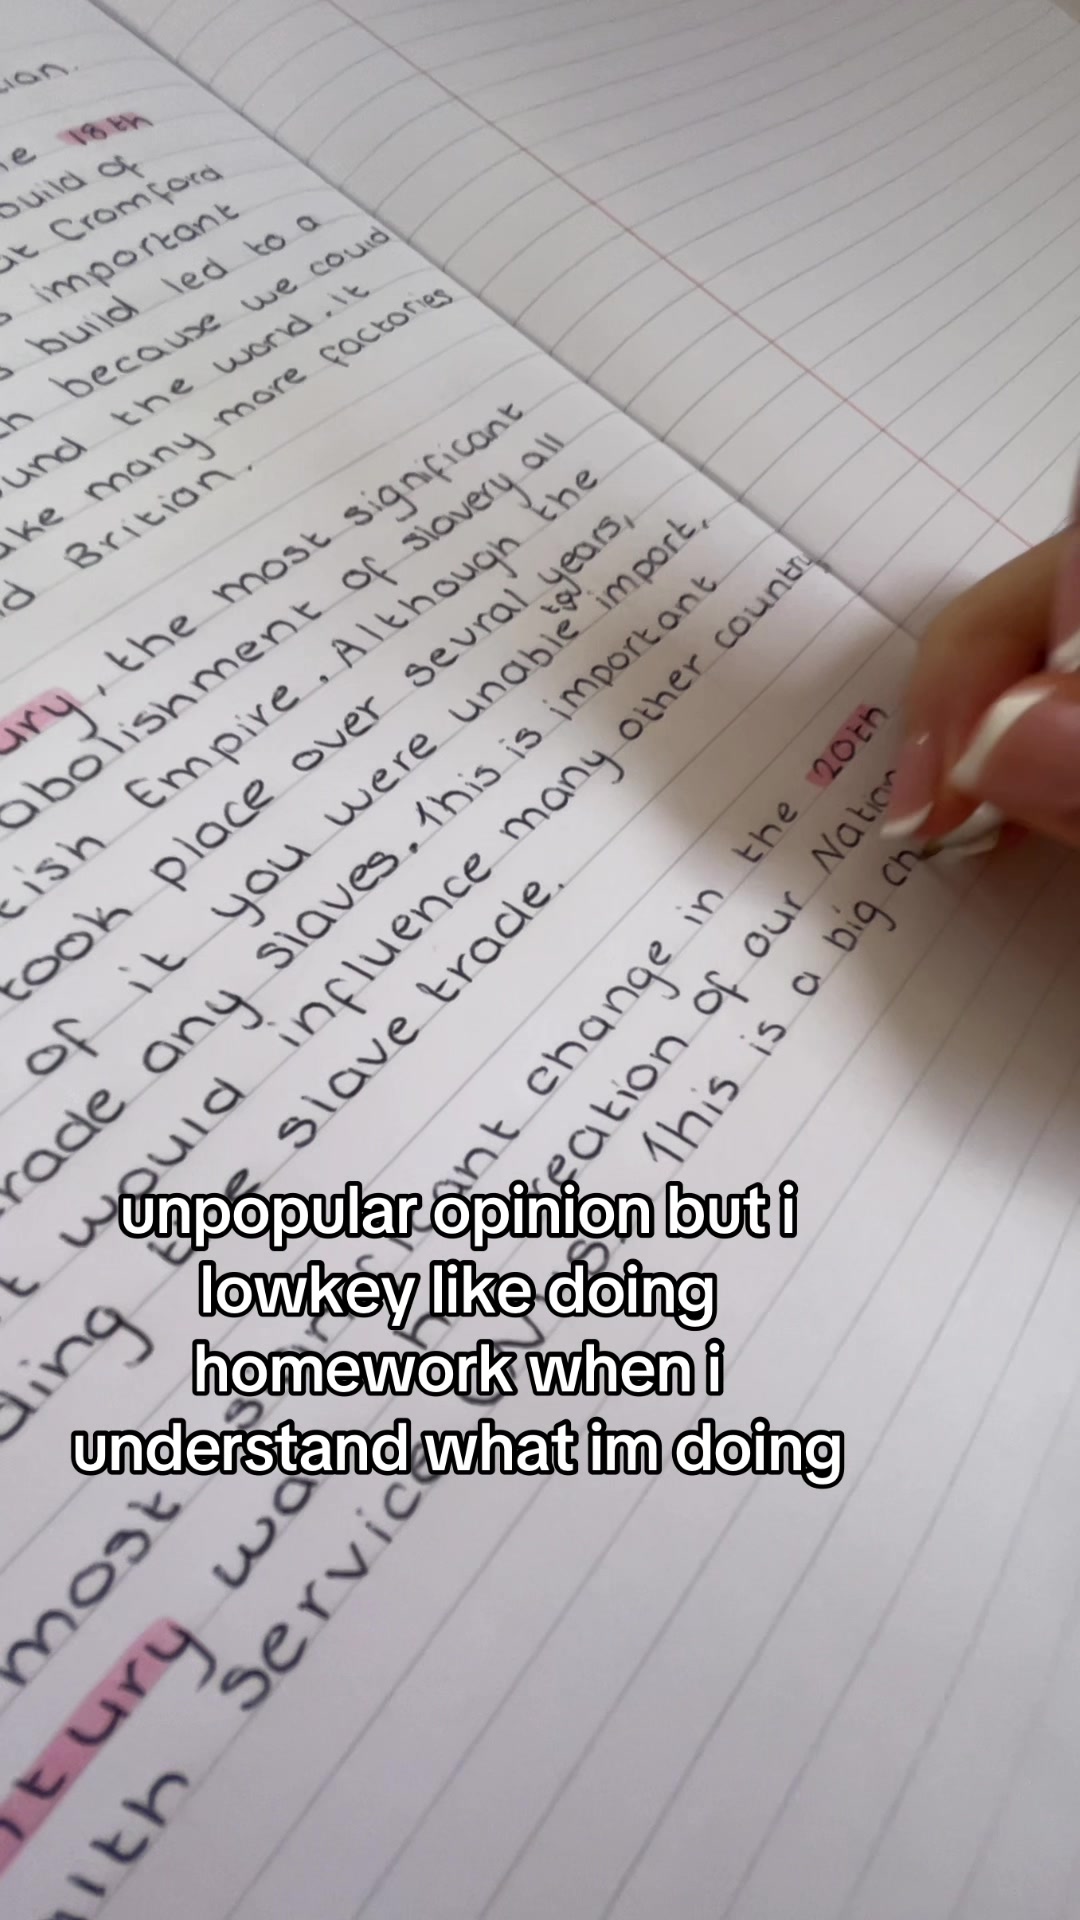 ian.
e 18th
build of
at Cromford
important
build led to a
because we could
und the world. it
ake many more factories
d Brition.
ury, the most significant
abolishment of slavery all
tish Empire. Although the
took place over sevral years,
of it you were unable to import,
rade any slaves. This is important
t would influence many other country
ding the slave trade.
most significant change in the 20th
tury was the creation of our Nation
alth Service (N.H.S). This is a big ch
unpopular opinion but i
lowkey like doing
homework when i
understand what im doing